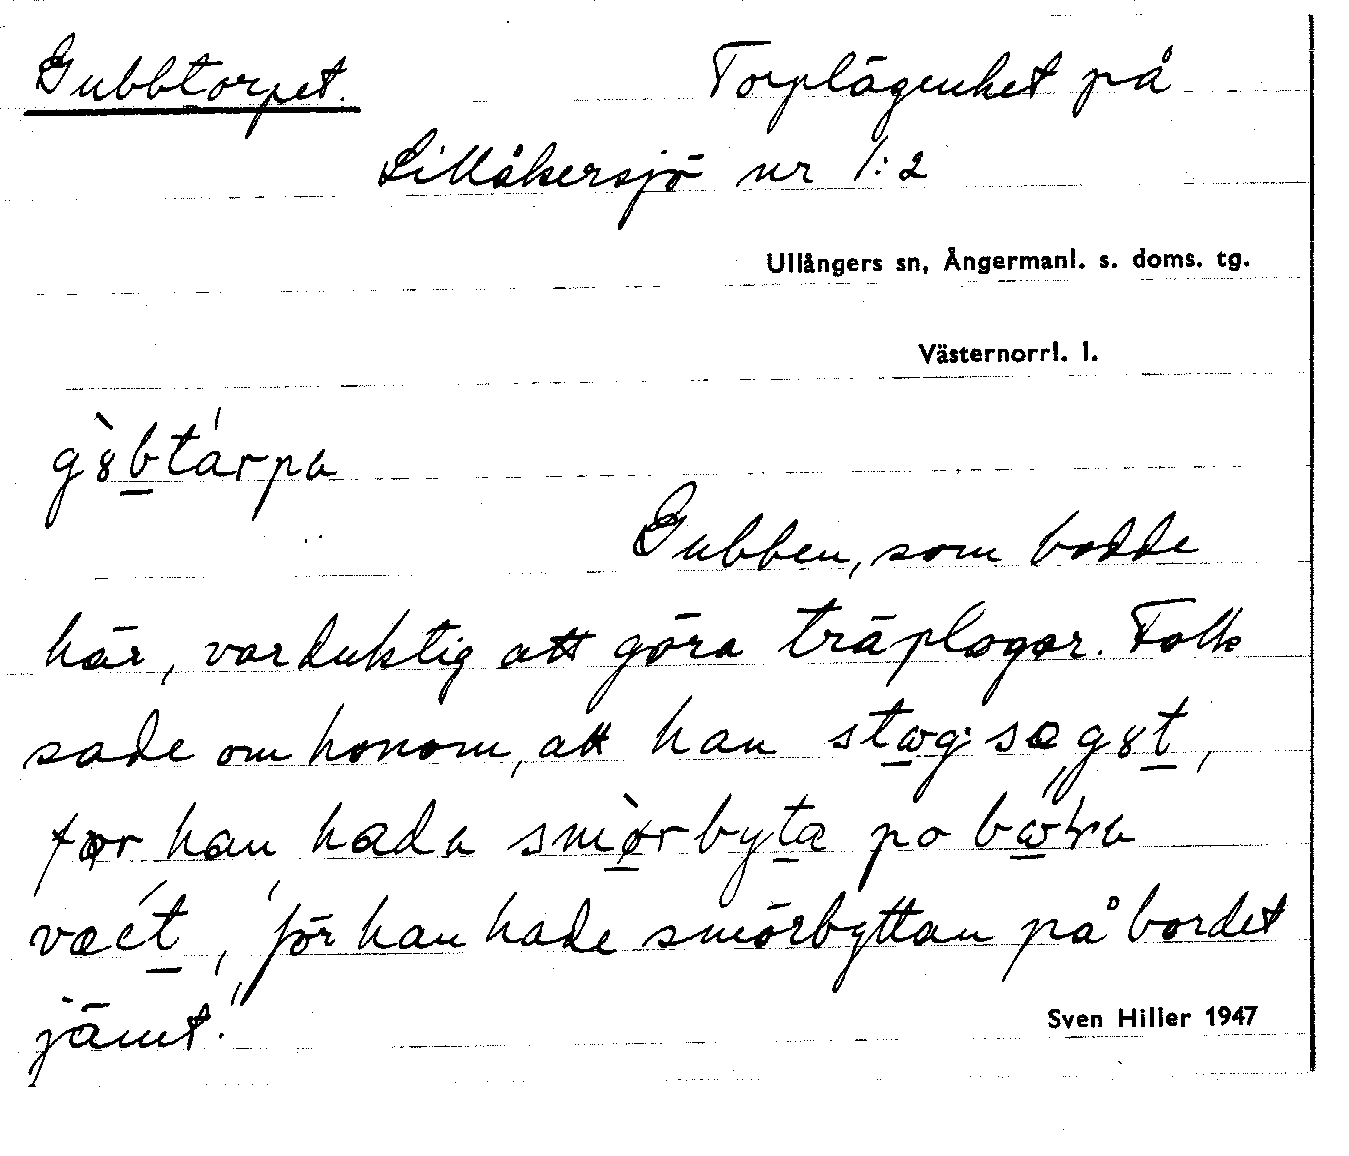 Gubbtorpet. Torplägenhet på
Lillåkersjö nr 1:2
Ullångers sn, Ångermanl. s. doms. tg.
Västernorrl. l.
Gubben, som bodde
här, var duktig att göra träplogar. Folk
sade om honom, att han
han hada po
, för han hade smörbyttan på bordet
jämt."
Sven Hilier 1947